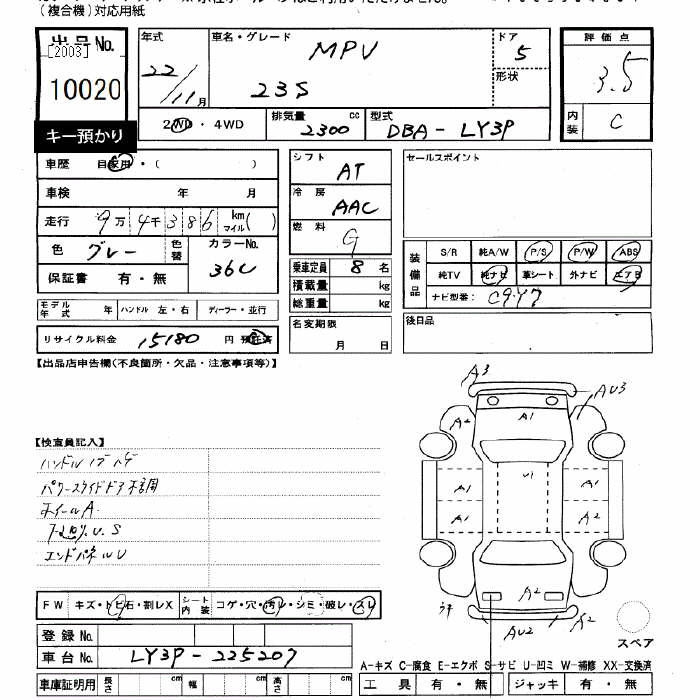 (複合機)対応用紙
出品No. [2003] 10020
キー預かり
年式 22/11月
車名・グレード MPV 23S
ドア 5
形状
評価点 3.5
内装 C
2WD・4WD
排気量 2300 cc
型式 DBA-LY3P
車歴 自家用・( )
車検 年 月
走行 9万4千386 km マイル( )
色 グレー 色替
カラーNo. 36C
保証書 有・無
モデル年式 年 ハンドル 左・右 ディーラー・並行
リサイクル料金 15180 円 預託済
シフト AT
冷房 AAC
燃料 G
乗車定員 8 名
積載量 kg
総重量 kg
名変期限 月 日
セールスポイント
装備品 S/R 純A/W P/S P/W ABS
純TV 純ナビ 革シート 外ナビ エアB
ナビ型番: C9Y7
後日品
【出品店申告欄(不良箇所・欠品・注意事項等)】
【検査員記入】
パワースライドドア不調
ホイールA
下廻り.U.S
エンドパネルU
A3
AU3
A2
A1
A1
U1
A1
A1
A2
A2
AU2
A2
スペア
FW キズ・トビ石・割レX シート内装 コゲ・穴・汚レ・シミ・破レ・スレ
登録No.
車台No. LY3P-225207
車庫証明用 長さ cm 幅 cm 高さ cm
A-キズ C-腐食 E-エクボ S-サビ U-凹ミ W-補修 XX-交換済
工具 有・無 ジャッキ 有・無